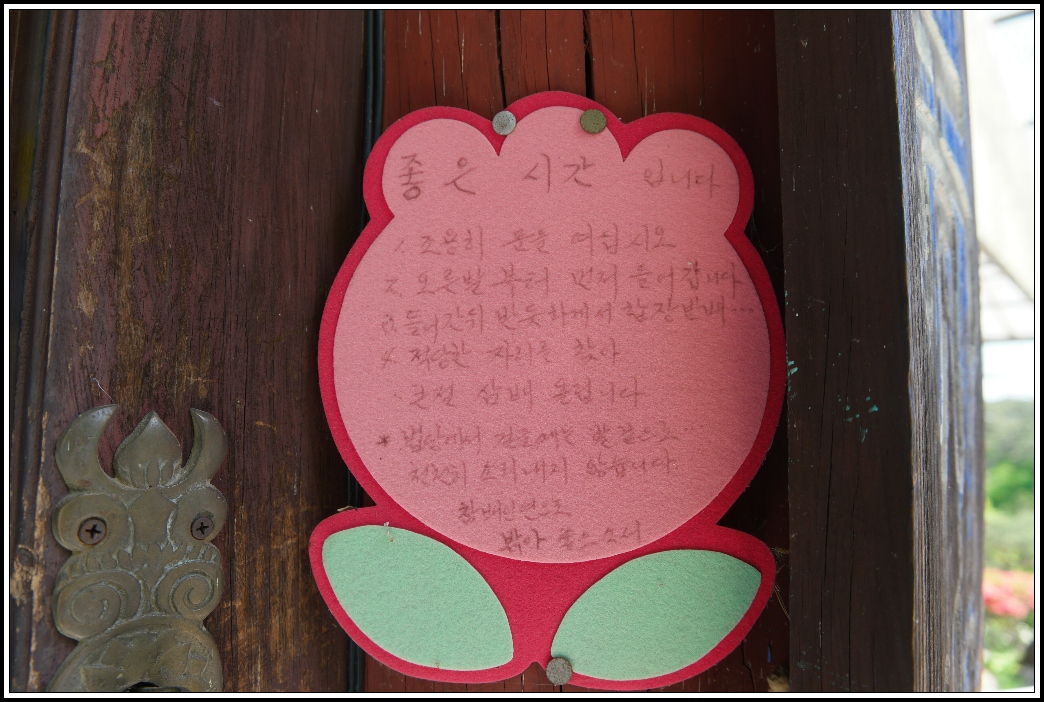 좋은 시간 입니다
1. 조용히 문을 여십시오
2. 오른발 부터 먼저 들어갑니다
3. 들어간뒤 반듯하게서 합장반배...
4. 적당한 자리를 찾아
큰절 삼배 올립니다
* 법당에서 걸을때는 발걸음으로...
천천히 소리내지 않습니다
밝아